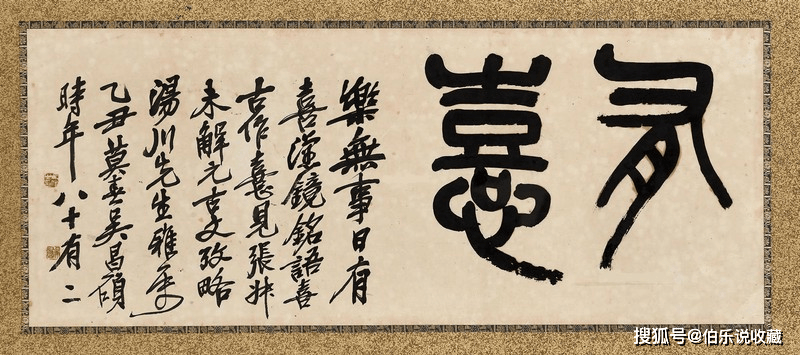 有憙
樂無事日有
喜漢鏡銘語喜
古作憙見張叔
未解元古文攷略
湯川先生雅屬
乙丑莫春吳昌碩
時年八十有二
搜狐号@伯乐说收藏